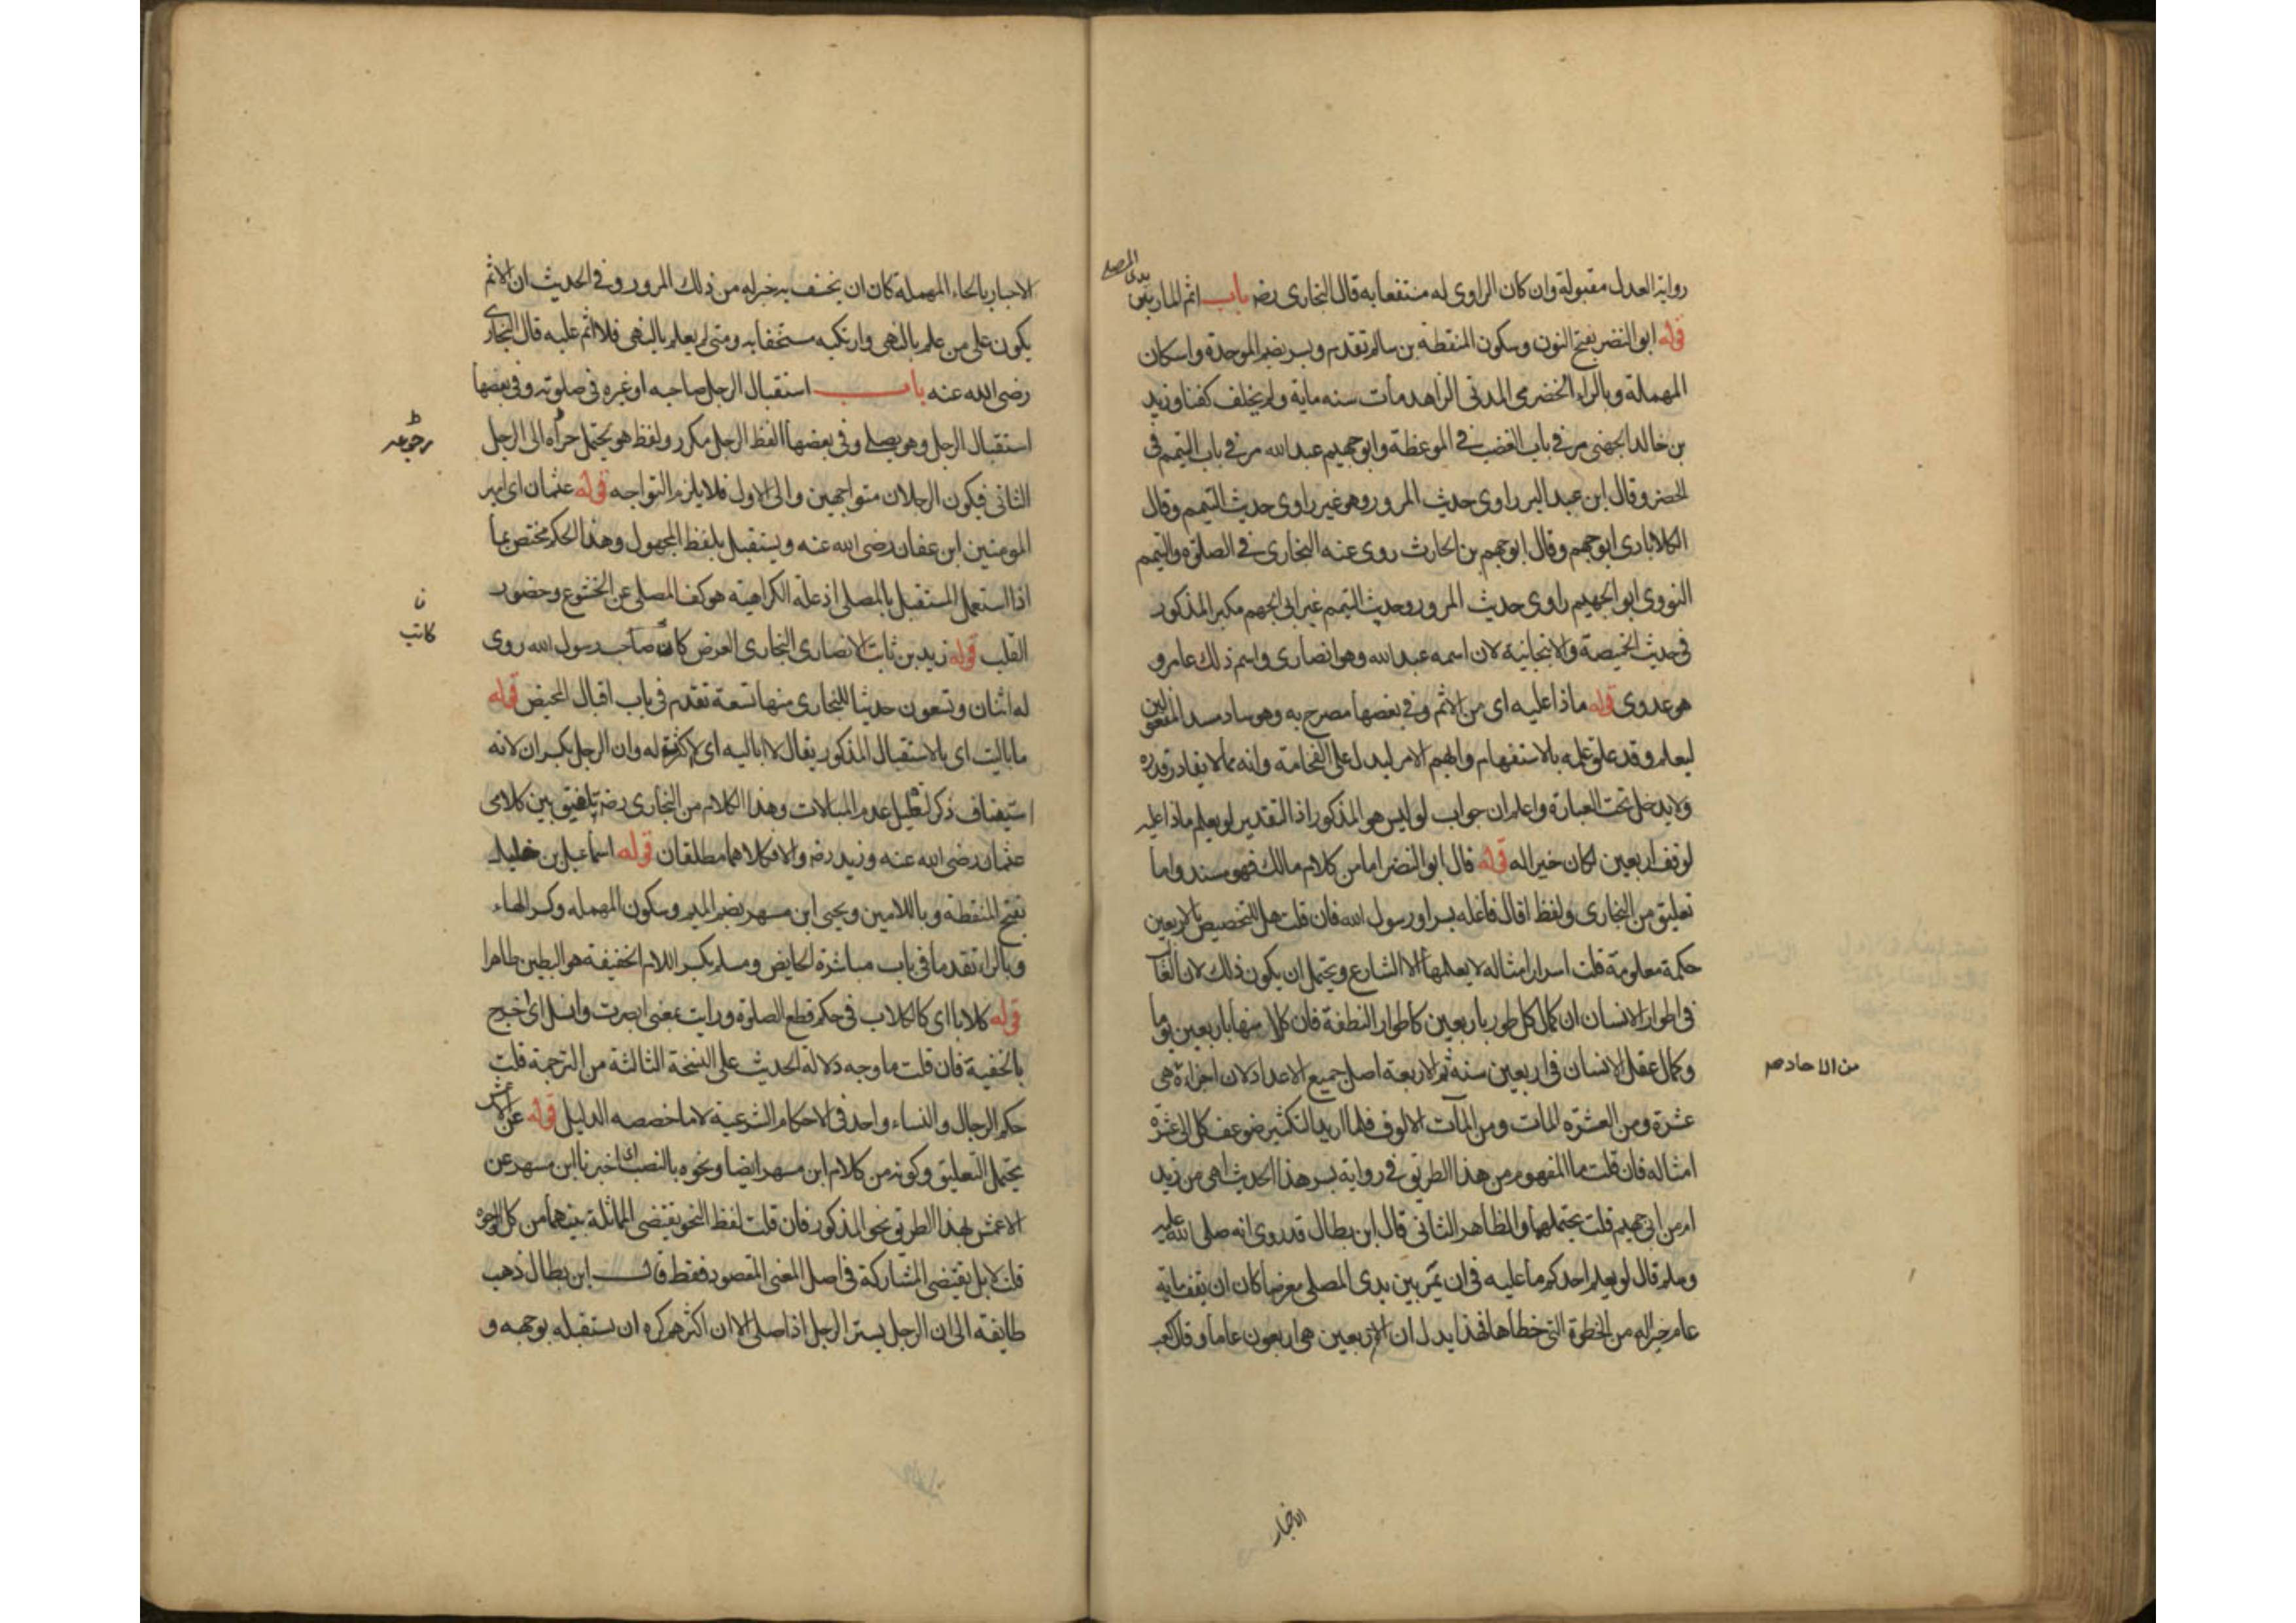 رواية العدل مقبولة وان كان الراوى له منتفعا به قال البخارى رضه باب اثم المار بين
يدى المصلى
قوله ابو النضر بفتح النون وسكون المنقطة بن سالم تقدم وبسر بضم الموحدة واسكان
المهملة وبالراء الحضرمى المدنى الزاهد مات سنه ماية ولم يخلف كفنا وزيد
بن خالد الجهنى مر فى باب الغضب فى الموعظة وابو جهيم عبد الله مر فى باب التيمم فى
الحضر وقال ابن عبد البر راوى حديث المرور وهو غير راوى حديث التيمم وقال
الكلاباذى ابو جهم وقال ابو جهم بن الحارث روى عنه البخارى فى الصلوة والتيمم
النووى ابو الجهيم راوى حديث المرور وحديث التيمم غير ابى الجهم مكبر المذكور
فى حديث الخميصة والانبجانية لان اسمه عبد الله وهو انصارى واسم ذلك عامر و
هو عدوى قوله ماذا عليه اى من الاثم وفى بعضها مصرح به وهو ساد مسد المفعولين
ليعلم وقد علق عمله بالاستفهام وابهم الامر ليدل على الفخامة وانه مما لا يقادر قدره
ولا يدخل تحت العبارة واعلم ان جواب لو ليس هو المذكور اذ التقدير لو يعلم ماذا عليه
لوقف اربعين لكان خيرا له قوله قال ابو النضر اما من كلام مالك فهو مسند واما
تعليق من البخارى ولفظ اقال فاعله بسر او رسول الله فان قلت هل للتخصيص بالاربعين
حكمة معلومة قلت اسرار امثاله لا يعلمها الا الشارع ويحتمل ان يكون ذلك لان الغالب
فى اطوار الانسان ان كمال كل طور باربعين كاطوار النطفة فان كلا منها باربعين يوما
وكمال عقل الانسان فى اربعين سنة ثم الاربعة اصل جميع الاعداد لان اجزاءه هى
من الاحاد صر
عشرة ومن العشرة المات ومن المآت الالوف فلما اريد التكثير ضوعف كل الى عشرة
امثاله فان قلت ما المفهوم من هذا الطريق فى رواية بسر هذا الحديث اهى من زيد
ام من ابى جهيم قلت يحتملهما والظاهر الثانى قال ابن بطال قد روى انه صلى الله عليه
وسلم قال لو يعلم احدكم ما عليه فى ان يمر بين يدى المصلى معرضا كان ان يقف ماية
عام خير له من الخطوة التى خطاها فهذا يدل ان الاربعين هى اربعون عاما وقال كعب
الاحبار
الاحبار بالحاء المهملة كان ان يخسف به خير له من ذلك المرور وفى الحديث ان الاثم
يكون على من علم بالنهى وارتكبه مستخفا به ومتى لم يعلم بالنهى فلا اثم عليه قال البخارى
رضى الله عنه باب استقبال الرجل صاحبه او غيره فى صلوته وفى بعضها
استقبال الرجل وهو يصلى وفى بعضها لفظ الرجل مكرر ولفظ هو يحتمل الى الرجل
رجوعه
الثانى فيكون الرجلان متواجهين والى الاول فلا يلزم التواجه قوله عثمان اى امير
المومنين ابن عفان رضى الله عنه ويستقبل بلفظ المجهول وهذا الحكم مختص بما
اذا استعمل المستقبل بالمصلى اذ علة الكراهية هو كف المصلى عن الخشوع وحضور
القلب قوله زيد بن ثابت الانصارى النجارى الفرضى كان صاحب رسول الله روى
ن
كاتب
له اثنان وتسعون حديثا للبخارى منها تسعة تقدم فى باب اقبال المحيض قوله
ما باليت اى بالاستقبال المذكور يقال لا اباليه اى لا اكترث له وان الرجل بكسر ان لانه
استيناف ذكر لتعليل عدم المبالات وهذا الكلام من البخارى رضه تلفيق بين كلامى
عثمان رضى الله عنه وزيد رضه والا فكلاهما مطلقان قوله اسماعيل بن خليل
بفتح المنقطة وباللامين ويحيى ابن مسهر بضم الميم وسكون المهمله وكسر الهاء
وبالراء تقدما فى باب مباشرة الحايض ومسلم بكسر اللام الخفيفة هو البطين ظاهرا
قوله كلابا اى كالكلاب فى حكم قطع الصلوة ورايت بمعنى ابصرت وانسل اى اخرج
بالخفية فان قلت ما وجه دلالة الحديث على النسخة الثالثة من الترجمة قلت
حكم الرجال والنساء واحد فى الاحكام الشرعية الا ما خصصه الدليل قوله عن الاعمش
يحتمل التعليق وكونه من كلام ابن مسهر ايضا ونحوه بالنصب اى اخبرنا ابن مسهر عن
الاعمش بهذا الطريق نحو المذكور فان قلت لفظ النحو يقتضى المماثلة بينهما من كل الوجوه
قلت لا بل يقتضى المشاركة فى اصل المعنى المقصود فقط قال ابن بطال ذهب
طايفة الى ان الرجل يستر الرجل اذا صلى الا ان اكثرهم كره ان يستقبله بوجهه و